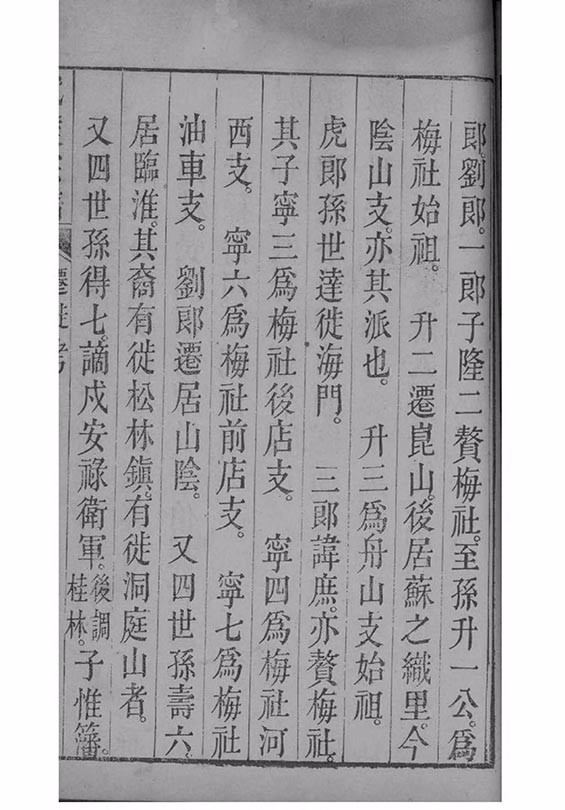 郎劉郎。一郎子隆二贅梅社。至孫升一公。爲
梅社始祖。　升二遷崑山。後居蘇之織里。今
陰山支。亦其派也。　升三爲舟山支始祖。
虎郎孫世達徙海門。　三郎諱庶。亦贅梅社。
其子寧三爲梅社後店支。　寧四爲梅社河
西支。　寧六爲梅社前店支。　寧七爲梅社
油車支。　劉郎遷居山陰。　又四世孫壽六。
居臨淮。其裔有徙松林鎮。有徙洞庭山者。
又四世孫得七。謫戍安祿衛軍。後調桂林。子惟籓。
遷徙考